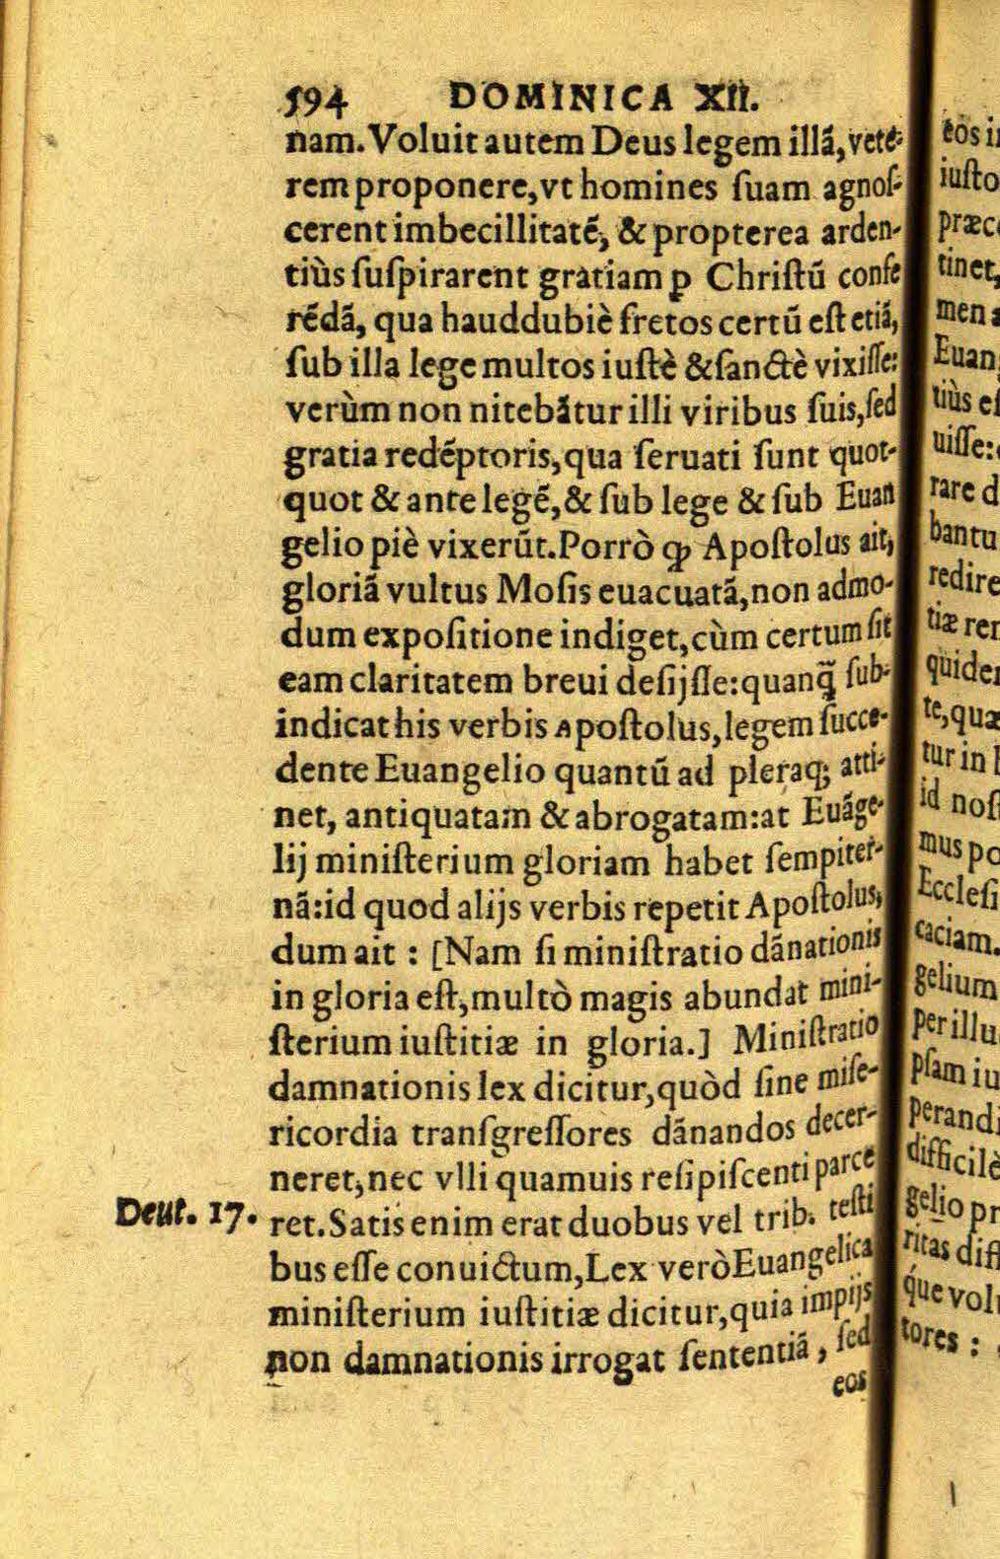 594 DOMINICA XII.
nam. Voluit autem Deus legem illã, vete-
rem proponere, vt homines ſuam agnoſ-
cerent imbecillitatẽ, & propterea arden-
tiùs ſuſpirarent gratiam ꝑ Chriſtũ confe
rẽdã, qua hauddubiè fretos certũ eſt etiã,
ſub illa lege multos iuſtè & ſanctè vixiſſe:
verùm non nitebãtur illi viribus ſuis, ſed
gratia redẽptoris, qua ſeruati ſunt quot-
quot & ante legẽ, & ſub lege & ſub Euan
gelio piè vixerũt. Porrò ꝙ Apoſtolus ait,
gloriã vultus Moſis euacuatã, non admo-
dum expoſitione indiget, cùm certum ſit
eam claritatem breui deſijſſe: quanq̃ ſub-
indicat his verbis Apoſtolus, legem ſucce-
dente Euangelio quantũ ad pleraq; atti-
net, antiquatam & abrogatam: at Euãge-
lij miniſterium gloriam habet ſempiter-
nã: id quod alijs verbis repetit Apoſtolus,
dum ait : [Nam ſi miniſtratio dãnationis
in gloria eſt, multò magis abundat mini-
ſterium iuſtitiæ in gloria.] Miniſtratio
damnationis lex dicitur, quòd ſine miſe-
ricordia tranſgreſſores dãnandos decer-
neret, nec vlli quamuis reſipiſcenti parce
Deut. 17. ret. Satis enim erat duobus vel trib. teſti
bus eſſe conuictum, Lex verò Euangelica
miniſterium iuſtitiæ dicitur, quia impijs
non damnationis irrogat ſententiã, ſed
eos